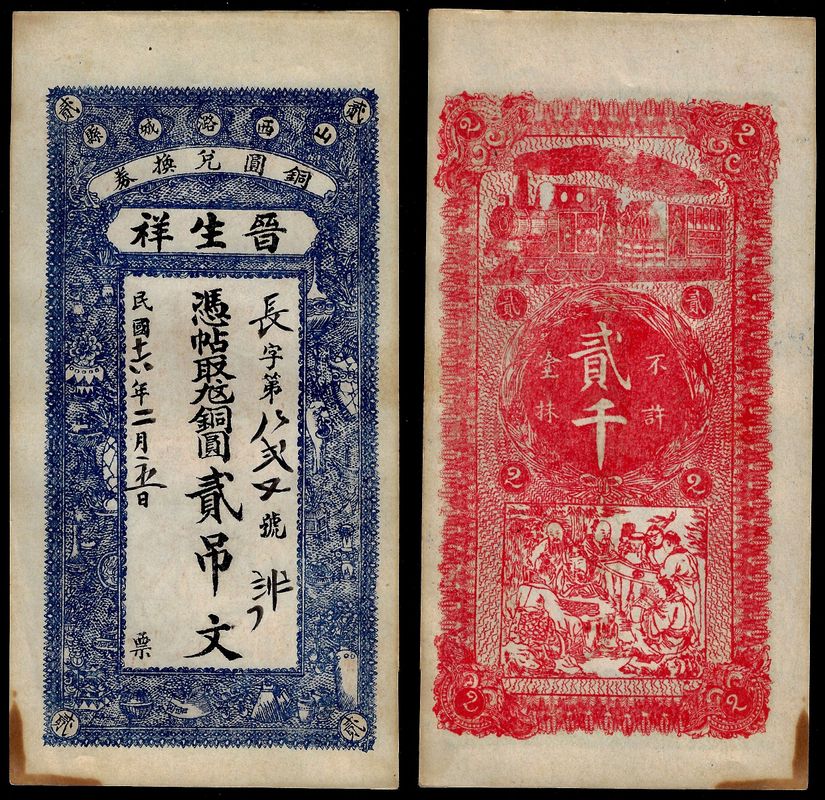 貳 貳
山西潞城縣
銅圓兌換券
晉生祥
長字第 號
憑帖取兌銅圓貳吊文
民國十六年二月 日
票
貳 貳
2 2
貳 貳
貳千
不許
抹
2 2
2 2